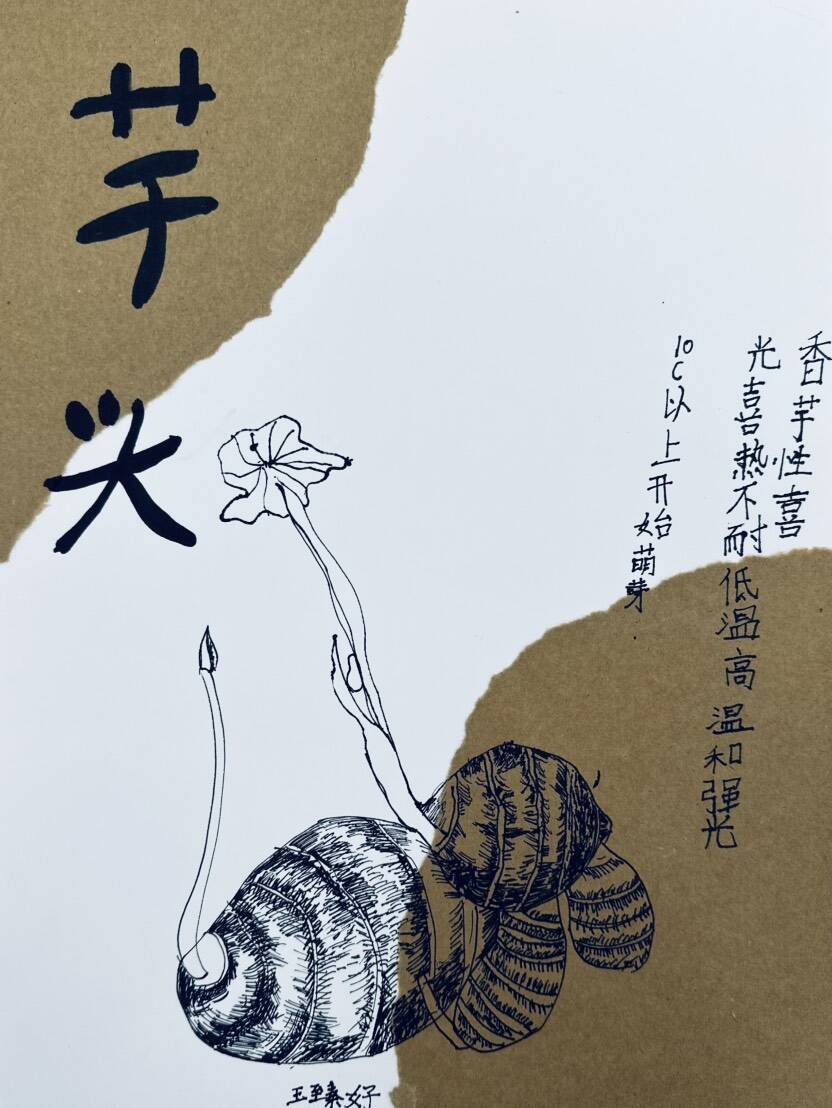 芋头
香芋性喜
光喜热不耐低温高温和强光
10C以上开始萌芽